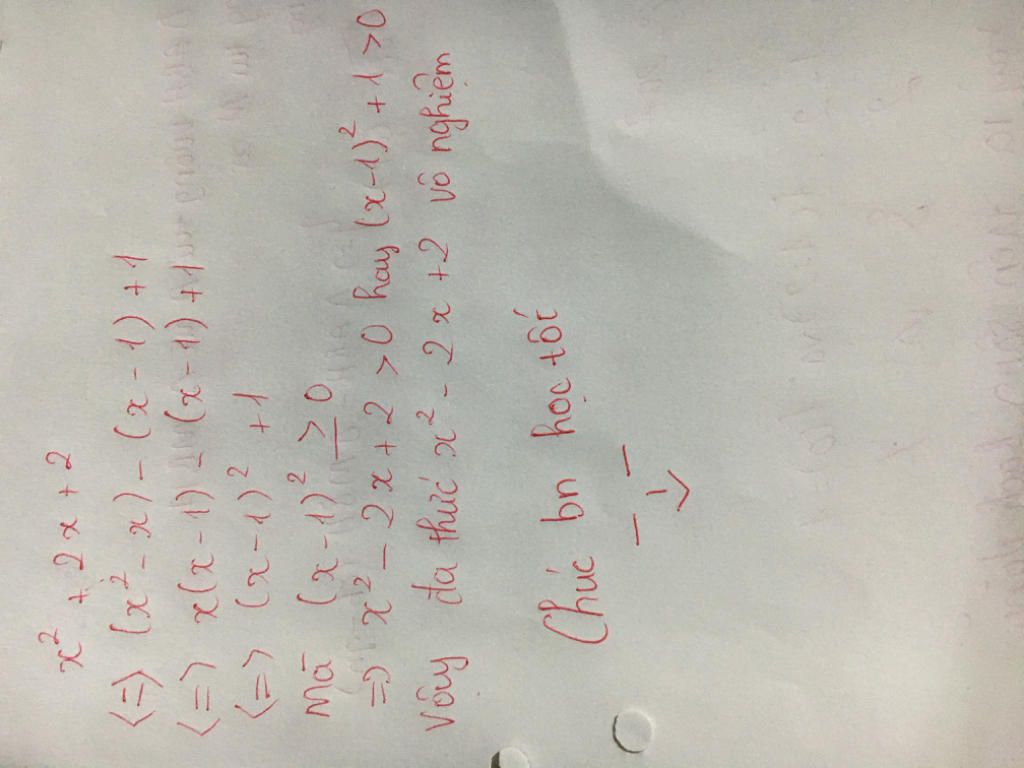 x² + 2x + 2
<=> (x² - x) - (x - 1) + 1
<=> x(x - 1) - (x - 1) + 1
<=> (x - 1)² + 1
Mà (x - 1)² ≥ 0
=> x² - 2x + 2 > 0 hay (x - 1)² + 1 > 0
Vậy đa thức x² - 2x + 2 vô nghiệm
Chúc bn học tốt